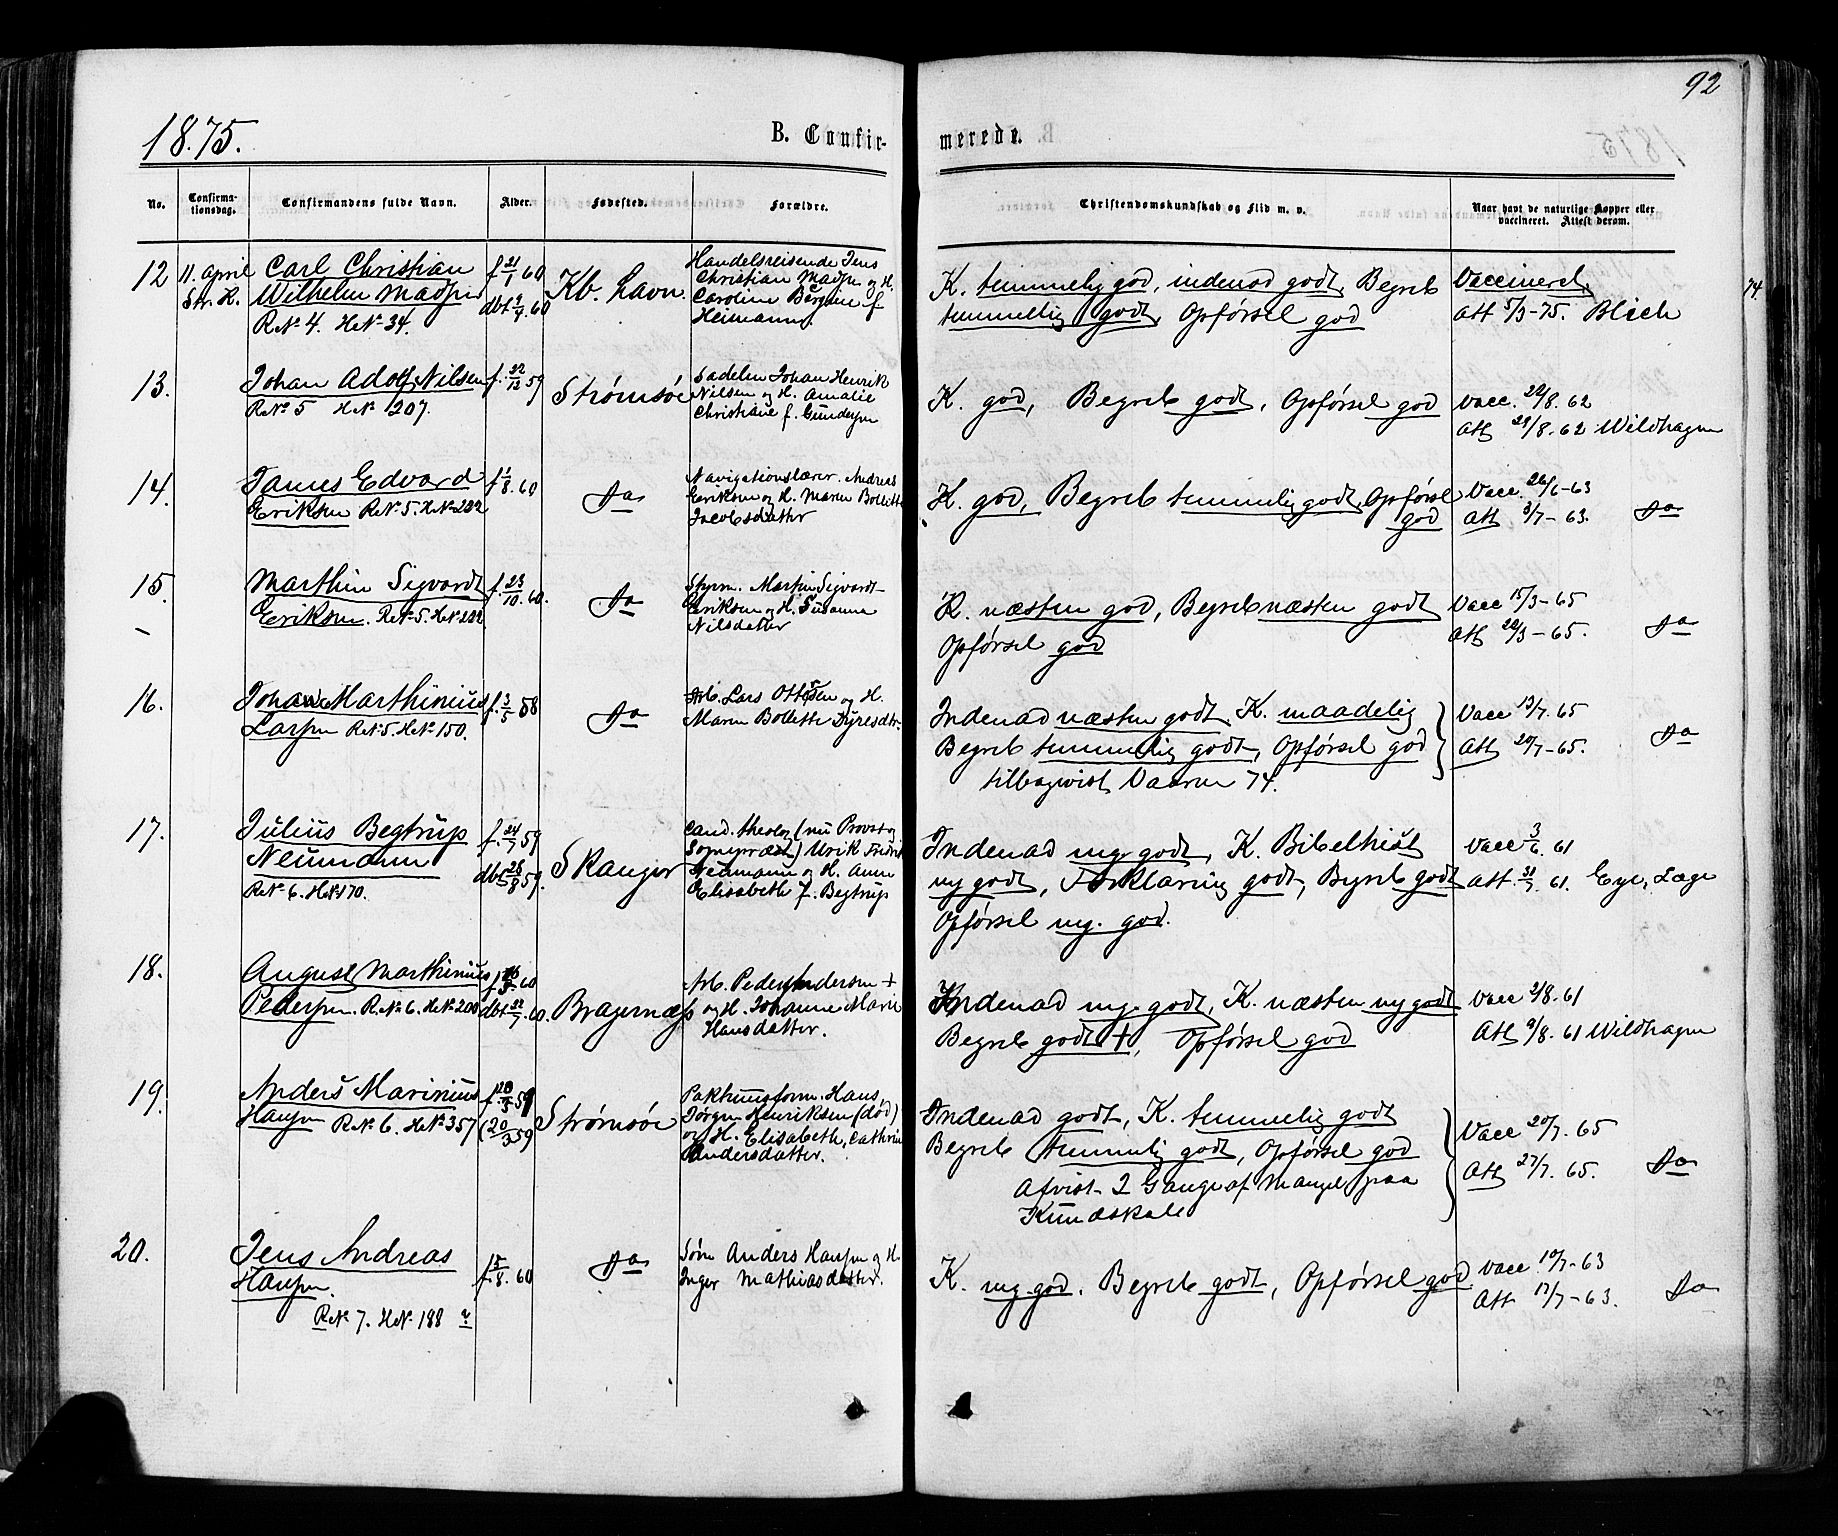 92
1875.
B. Confir-
merede.
No.
Confirma-
tionsdag.
Confirmandens fulde Navn.
Alder.
Fødested.
Forældre.
Christendomskundskab og Flid m. v.
Naar havt de naturlige Kopper eller
vaccineret. Attest derom.
12
11. April
Str. K.
Carl Christian
Wilhelm Madsen
R.No 4. H.No 34.
f. 21/1 60
dbt 9/4. 60
Kb. havn.
Handelsreisende Jens
Christian Madsen og H.
Caroline f.
Heimann.
K. temmelig god, indenad godt, Begreb
temmelig godt, Opførsel god
Vaccineret,
Att 5/3-75. Blich
74
13.
Johan Adolf Nilsen
R.No 5 H.No 207.
f. 22/12 59
Strømsøe
Sadelm Johan Henrik
Nilsen og H. Amalie
Christiane f. Gundersen
K. god, Begreb godt, Opførsel god
Vacc. 22/8. 62
Att 29/8. 62 Wildhagen
14.
James Edvard
Eriksen R.No 5. H.No 222
f. 1/8. 60
Do
Navigationslærer Andreas
Eriksen og H. Maren Bollette
Jacobsdatter
K. god, Begreb temmelig godt, Opførsel
god
Vacc. 26/6-63
Att 3/7-63. Do
15.
Marthin Sigvardt
Eriksen. R.No 5. H.No 222
f. 23/10. 60.
Do
Styrm. Martin Sigvardt
Eriksen og H. Susanne
Nilsdatter
K. næsten god, Begreb næsten godt
Opførsel god
Vacc 15/3-65
Att 22/3-65. Do
16.
Johan Marthinius
Larsen R.No 5. H.No 150.
f. 3/5 58
Do
Arb. Lars Ottesen og H.
Maren Bollette Dyresdtr.
Indenad næsten godt, K. maadelig
Begreb temmelig godt, Opførsel god
tilbagevist Vaaren 74.
Vacc 13/7. 65
Att 20/7-65. Do
17.
Julius Begtrup
Neumann
R.No 6. H.No 170.
f. 24/7 59
dbt 28/8 59.
Skanger
Cand. theolog (nu Provst og
Sognepræst) Ulrik Fredrik
Neumann og H. Anne
Elisabeth f. Begtrup
Indenad mg. godt, K. Bibelhist
mg godt, Forklaring godt, Begreb godt
Opførsel mg. god.
Vacc 3/6. 61
Att. 31/7. 61. Eye, Læge
18.
August Marthinius
Pedersen. R.No 6. H.No 200
60
dbt 22/7. 60.
Bragernæss
Arb. Peder Andersen +
og H. Johanne Marie
Hansdatter.
Indenad mg. godt, K. næsten mg godt
Begreb godt +, Opførsel god
Vacc 2/8. 61
Att 9/8. 61 Wildhagen
19.
Anders Marinius
Hansen R.No 6. H.No 357
f. 20/3 59
(20/3 59
Strømsøe
Pakhuusform. Hans
Jørgen Henriksen (død)
og H. Elisabeth Cathrine
Andersdatter.
Indenad godt, K. temmelig godt
Begreb temmelig godt, Opførsel god
Afvist 2 Gange af Mangel paa
Kundskab
Vacc 20/7. 65
Att 27/7. 65. Do
20.
Jens Andreas
Hansen.
R.No 7. H.No 188
f. 5/8. 60
Do
Søm Anders Hansen og H.
Inger Mathiasdatter.
K. mg. god. Begreb godt, Opførsel god
Vacc. 10/7-63
Att 17/7-63. Do